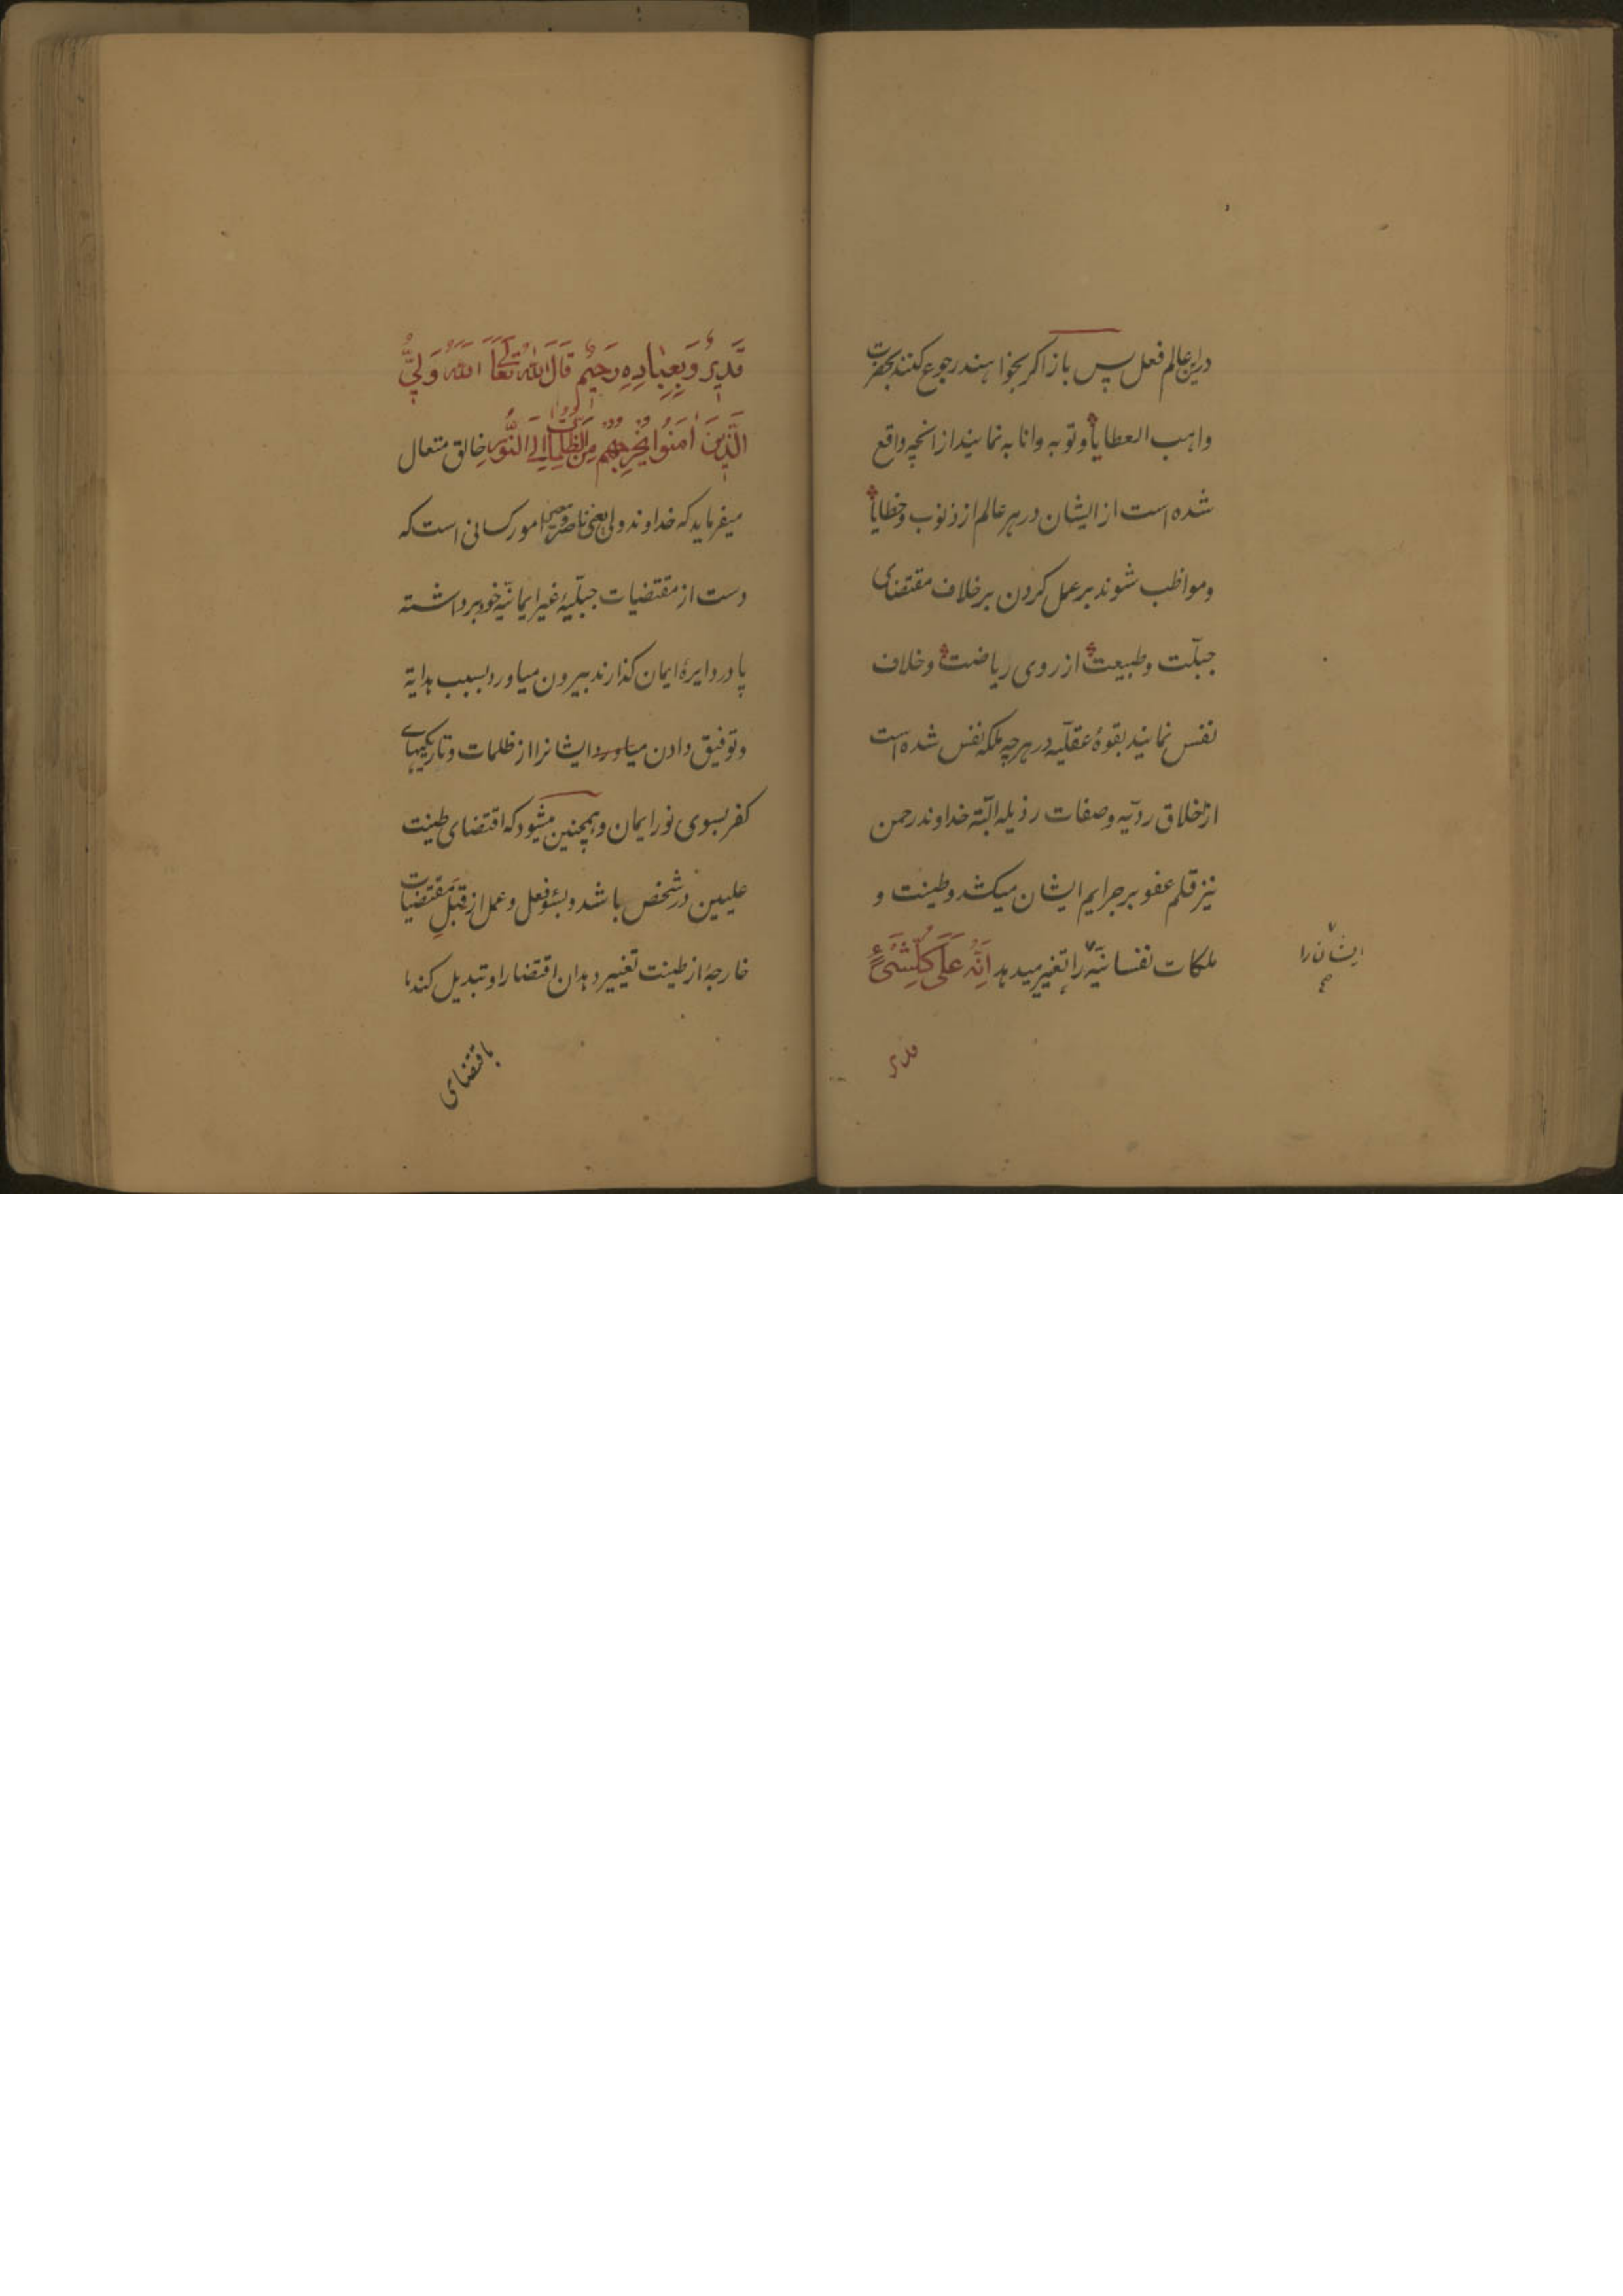 دراین عالم فعل پس باز اکر بخواهند رجوع کنند بحضرت
واهب العطایا و توبه و انابه نمایند از انچه واقع
شده است از ایشان در هر عالم از ذنوب و خطایا
و مواظب شوند بر عمل کردن بر خلاف مقتضای
جبلّت و طبیعت از روی ریاضت و خلاف
نفس نمایند بقوهٔ عقلّیه در هرچه ملکه نفس شده است
از اخلاق ردیّه و صفات رذیله البّته خداوند رحمن
نیز قلم عفو بر جرایم ایشان میکشد و طینت و
ملکات نفسانیّه را تغییر میدهد اِنَّهُ عَلَی کُلِّ شَیْءٍ
ایشانرا
قدیر
قَدِیرٌ وَ بِعِبادِهِ رَحِیمٌ قَالَ اللّٰهُ تَعَالَی اَللّٰهُ وَلِیُّ
الَّذِینَ اٰمَنُوا یُخْرِجُهُمْ مِنَ الظُّلُمَاتِ اِلَی النُّورِ خالق متعال
میفرماید که خداوند ولی یعنی ناصر و مصلح امور کسانی است که
دست از مقتضیات جبلّیهٔ غیر ایمانیّه خود برداشته
پا در دایرهٔ ایمان کذارند بیرون میاورد بسبب هدایة
و توفیق دادن میاورد ایشانرا از ظلمات و تاریکیهای
کفر بسوی نور ایمان و همچنین میشود که اقتضای طینت
علیین در شخص باشد و بسؤ فعل و عمل از قبلِ مقتضیات
خارجهٔ از طینت تغییر دهد ان اقتضا را و تبدیل کند
باقتضای